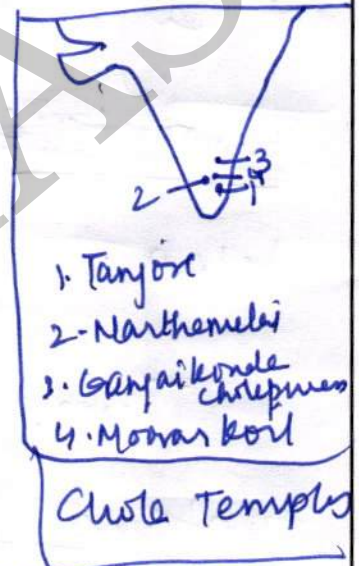 3
4
2
1
1. Tanjore
2-Narthemalai
3. Gangaikonda
cholapuram
4. Moovar koil
Chola Temples